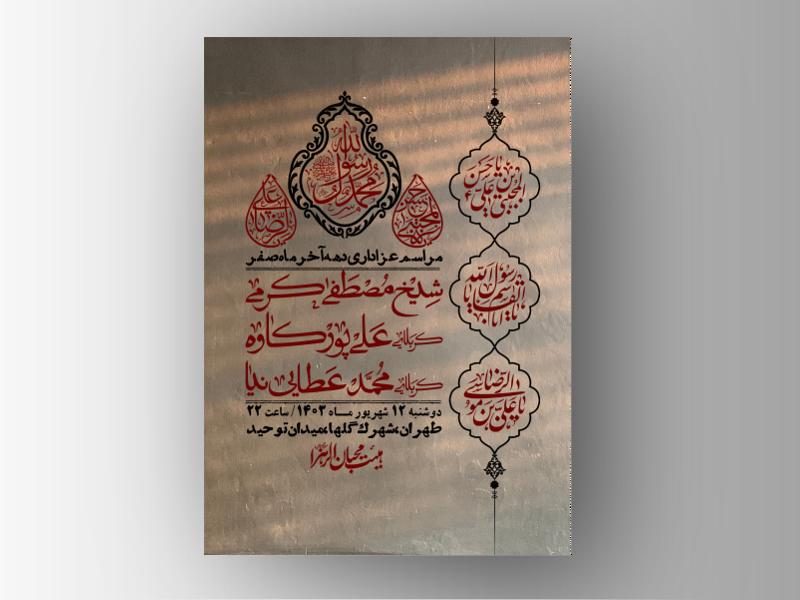 محمد رسول الله
علی بن موسی الرضا
حسن المجتبی
مراسم عزاداری دهه آخر ماه صفر
شیخ مُصْطَفیٰ کرمی
کربلایی عَلی پورْکاوه
کربلایی مُحمَّدْ عَطایی نیا
دوشنبه ۱۲ شهریور ماه ۱۴۰۳/ساعت ۲۲
طهران،شهرك گلها،میدان توحید
هیئت محبان الزهرا
یا حَسَن بن عَلیّ المجتبی
یا اَبَا القاسِم یا رَسُولَ الله
یا عَلیّ بن مُوسَی الرّضا